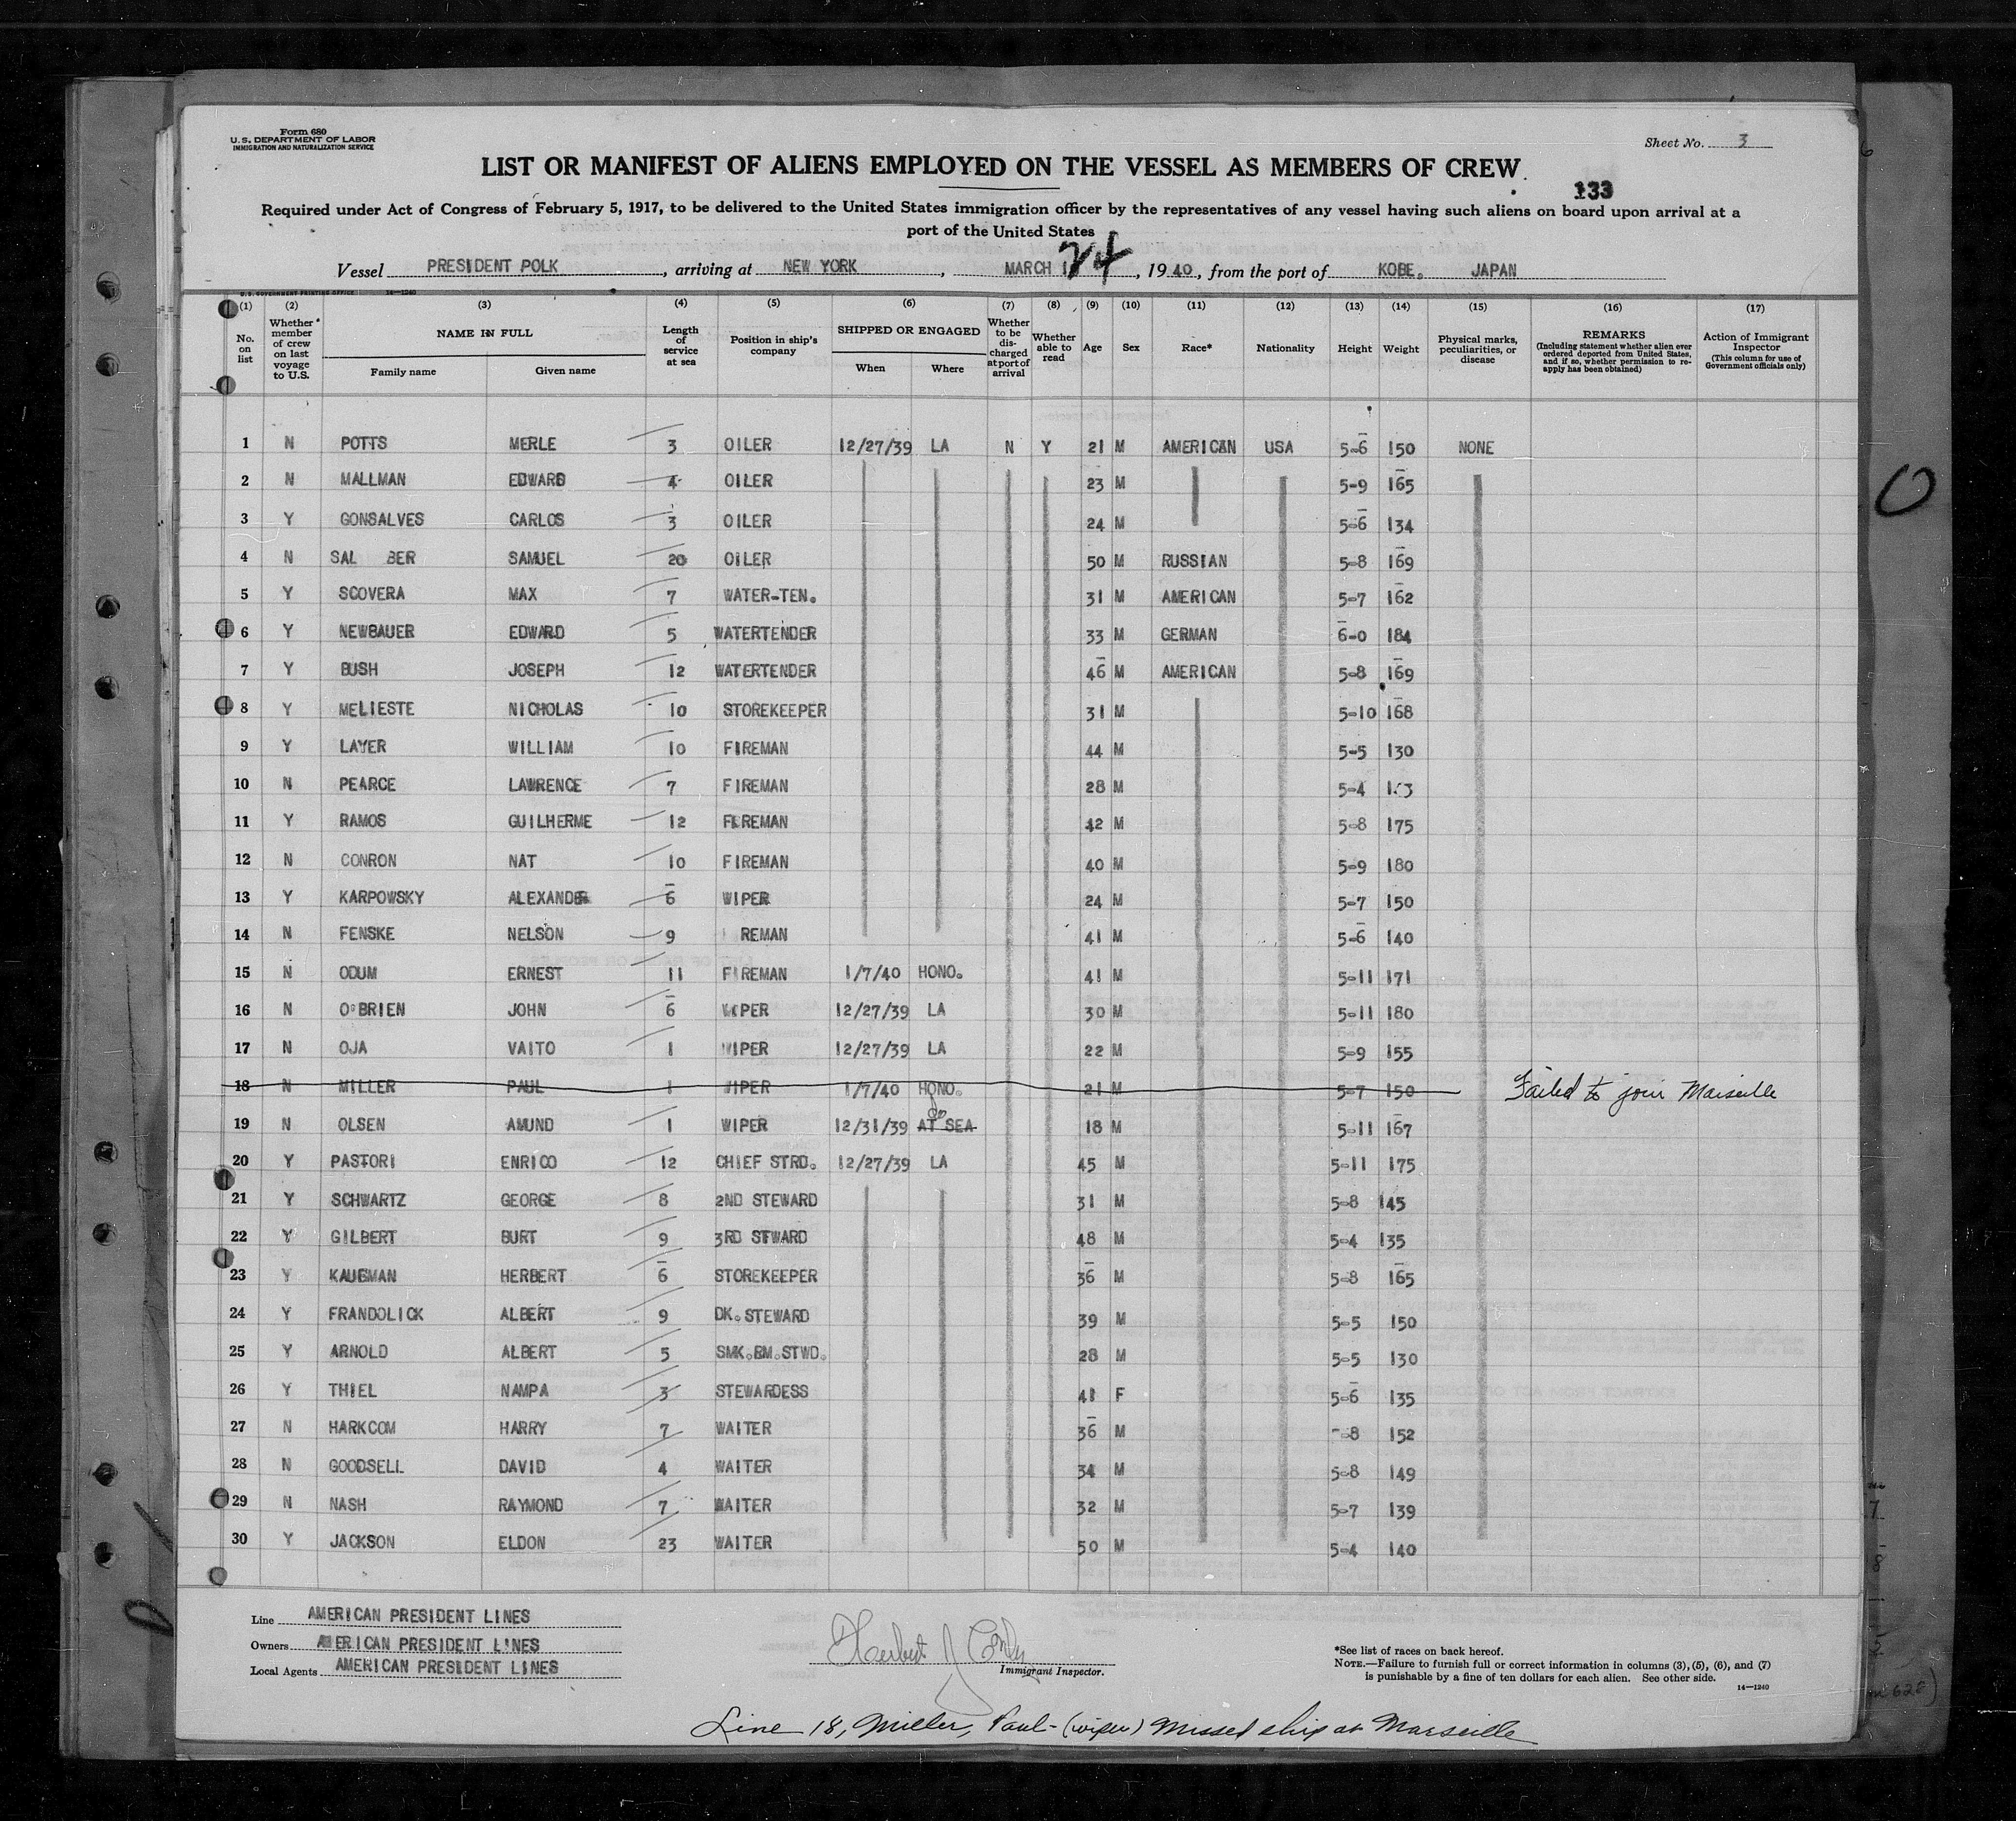 Form 680
U. S. DEPARTMENT OF LABOR
IMMIGRATION AND NATURALIZATION SERVICE
Sheet No. 3
LIST OR MANIFEST OF ALIENS EMPLOYED ON THE VESSEL AS MEMBERS OF CREW
133
Required under Act of Congress of February 5, 1917, to be delivered to the United States immigration officer by the representatives of any vessel having such aliens on board upon arrival at a
port of the United States
Vessel PRESIDENT POLK, arriving at NEW YORK, MARCH 24, 1940, from the port of KOBE. JAPAN
U. S. GOVERNMENT PRINTING OFFICE 14—1240
(1) (2) (3) (4) (5) (6) (7) (8) (9) (10) (11) (12) (13) (14) (15) (16) (17)
No. on list
Whether member of crew on last voyage to U.S.
NAME IN FULL
Family name Given name
Length of service at sea
Position in ship's company
SHIPPED OR ENGAGED
When Where
Whether to be discharged at port of arrival
Whether able to read
Age
Sex
Race*
Nationality
Height
Weight
Physical marks, peculiarities, or disease
REMARKS
(Including statement whether alien ever ordered deported from United States, and if so, whether permission to reapply has been obtained)
Action of Immigrant Inspector
(This column for use of Government officials only)
1 N POTTS MERLE 3 OILER 12/27/39 LA N Y 21 M AMERICAN USA 5-6 150 NONE
2 N MALLMAN EDWARD 4 OILER 23 M 5-9 165
3 Y GONSALVES CARLOS 3 OILER 24 M 5-6 134
4 N SAL BER SAMUEL 20 OILER 50 M RUSSIAN 5-8 169
5 Y SCOVERA MAX 7 WATER-TEN. 31 M AMERICAN 5-7 162
6 Y NEWBAUER EDWARD 5 WATERTENDER 33 M GERMAN 6-0 184
7 Y BUSH JOSEPH 12 WATERTENDER 46 M AMERICAN 5-8 169
8 Y MELIESTE NICHOLAS 10 STOREKEEPER 31 M 5-10 168
9 Y LAYER WILLIAM 10 FIREMAN 44 M 5-5 130
10 N PEARCE LAWRENCE 7 FIREMAN 28 M 5-4
11 Y RAMOS GUILHERME 12 FEREMAN 42 M 5-8 175
12 N CONRON NAT 10 FIREMAN 40 M 5-9 180
13 Y KARPOWSKY ALEXANDER 6 WIPER 24 M 5-7 150
14 N FENSKE NELSON 9 REMAN 41 M 5-6 140
15 N ODUM ERNEST 11 FIREMAN 1/7/40 HONO. 41 M 5-11 171
16 N O'BRIEN JOHN 6 WIPER 12/27/39 LA 30 M 5-11 180
17 N OJA VAITO 1 WIPER 12/27/39 LA 22 M 5-9 155
18 N MILLER PAUL 1 WIPER 1/7/40 HONO. 21 M 5-7 150 Failed to join Marseille
19 N OLSEN AMUND 1 WIPER 12/31/39 AT SEA do 18 M 5-11 167
20 Y PASTORI ENRICO 12 CHIEF STRD. 12/27/39 LA 45 M 5-11 175
21 Y SCHWARTZ GEORGE 8 2ND STEWARD 31 M 5-8 145
22 Y GILBERT BURT 9 3RD STWARD 48 M 5-4 135
23 Y KAUFMAN HERBERT 6 STOREKEEPER 36 M 5-8 165
24 Y FRANDOLICK ALBERT 9 DK. STEWARD 39 M 5-5 150
25 Y ARNOLD ALBERT 5 SMK.RM.STWD. 28 M 5-5 130
26 Y THIEL NAMPA 3 STEWARDESS 41 F 5-6 135
27 N HARKCOM HARRY 7 WAITER 36 M -8 152
28 N GOODSELL DAVID 4 WAITER 34 M 5-8 149
29 N NASH RAYMOND 7 WAITER 32 M 5-7 139
30 Y JACKSON ELDON 23 WAITER 50 M 5-4 140
Line AMERICAN PRESIDENT LINES
Owners AMERICAN PRESIDENT LINES
Local Agents AMERICAN PRESIDENT LINES
Herbert J
Immigrant Inspector.
*See list of races on back hereof.
NOTE.—Failure to furnish full or correct information in columns (3), (5), (6), and (7)
is punishable by a fine of ten dollars for each alien. See other side.
14—1240
Line 18, Miller, Paul - (wiper) Missed ship at Marseille